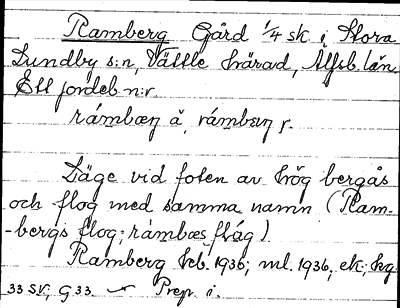 Ramberg Gård 1/4 sk i Stora
Lundby s:n, Vättle härad, Älfsb. län.
Ett jordeb n:r.
rámbæŋ å, rámbæŋ r.
Läge vid foten av hög bergås
och flog med samma namn (Ram-
-bergs flog; ràmbæs flåg)
Ramberg 1936; ml. 1936, ek; hg
33 SV, G 33. Prep i.